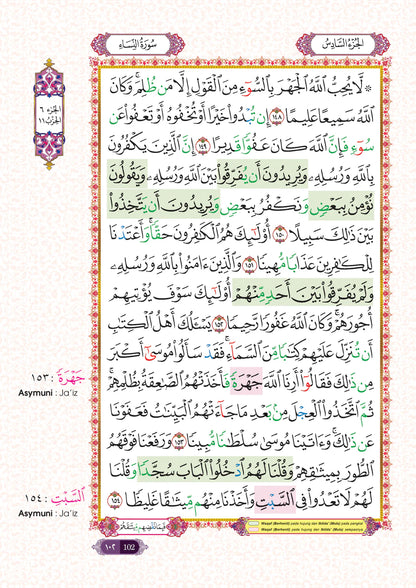 الجُزْءُ السَّادِسُ
سُورَةُ النِّسَاءِ
الجزء ٦
الحزب ١١
۞ لَّا يُحِبُّ ٱللَّهُ ٱلْجَهْرَ بِٱلسُّوٓءِ مِنَ ٱلْقَوْلِ إِلَّا مَن ظُلِمَ ۚ وَكَانَ
ٱللَّهُ سَمِيعًا عَلِيمًا ١٤٨ إِن تُبْدُوا۟ خَيْرًا أَوْ تُخْفُوهُ أَوْ تَعْفُوا۟ عَن
سُوٓءٍ فَإِنَّ ٱللَّهَ كَانَ عَفُوًّا قَدِيرًا ١٤٩ إِنَّ ٱلَّذِينَ يَكْفُرُونَ
بِٱللَّهِ وَرُسُلِهِۦ وَيُرِيدُونَ أَن يُفَرِّقُوا۟ بَيْنَ ٱللَّهِ وَرُسُلِهِۦ وَيَقُولُونَ
نُؤْمِنُ بِبَعْضٍ وَنَكْفُرُ بِبَعْضٍ وَيُرِيدُونَ أَن يَتَّخِذُوا۟
بَيْنَ ذَٰلِكَ سَبِيلًا ١٥٠ أُو۟لَٰٓئِكَ هُمُ ٱلْكَٰفِرُونَ حَقًّا ۚ وَأَعْتَدْنَا
لِلْكَٰفِرِينَ عَذَابًا مُّهِينًا ١٥١ وَٱلَّذِينَ ءَامَنُوا۟ بِٱللَّهِ وَرُسُلِهِۦ
وَلَمْ يُفَرِّقُوا۟ بَيْنَ أَحَدٍ مِّنْهُمْ أُو۟لَٰٓئِكَ سَوْفَ يُؤْتِيهِمْ
أُجُورَهُمْ ۗ وَكَانَ ٱللَّهُ غَفُورًا رَّحِيمًا ١٥٢ يَسْـَٔلُكَ أَهْلُ ٱلْكِتَٰبِ
أَن تُنَزِّلَ عَلَيْهِمْ كِتَٰبًا مِّنَ ٱلسَّمَآءِ ۚ فَقَدْ سَأَلُوا۟ مُوسَىٰٓ أَكْبَرَ
مِن ذَٰلِكَ فَقَالُوٓا۟ أَرِنَا ٱللَّهَ جَهْرَةً فَأَخَذَتْهُمُ ٱلصَّٰعِقَةُ بِظُلْمِهِمْ ۚ
ثُمَّ ٱتَّخَذُوا۟ ٱلْعِجْلَ مِنۢ بَعْدِ مَا جَآءَتْهُمُ ٱلْبَيِّنَٰتُ فَعَفَوْنَا
عَن ذَٰلِكَ ۚ وَءَاتَيْنَا مُوسَىٰ سُلْطَٰنًا مُّبِينًا ١٥٣ وَرَفَعْنَا فَوْقَهُمُ
ٱلطُّورَ بِمِيثَٰقِهِمْ وَقُلْنَا لَهُمُ ٱدْخُلُوا۟ ٱلْبَابَ سُجَّدًا وَقُلْنَا
لَهُمْ لَا تَعْدُوا۟ فِى ٱلسَّبْتِ وَأَخَذْنَا مِنْهُم مِّيثَٰقًا غَلِيظًا ١٥٤
جَهْرَةً : ١٥٣
Asymuni : Ja'iz
ٱلسَّبْتِ : ١٥٤
Asymuni : Ja'iz
فَبِمَا نَقْضِهِم مِّيثَٰقَهُمْ
Waqaf (Berhenti) pada hujung dan Ibtida' (Mula) pada pangkal
Waqaf (Berhenti) pada hujung dan Ibtida' (Mula) selepasnya
١٠٢ 102